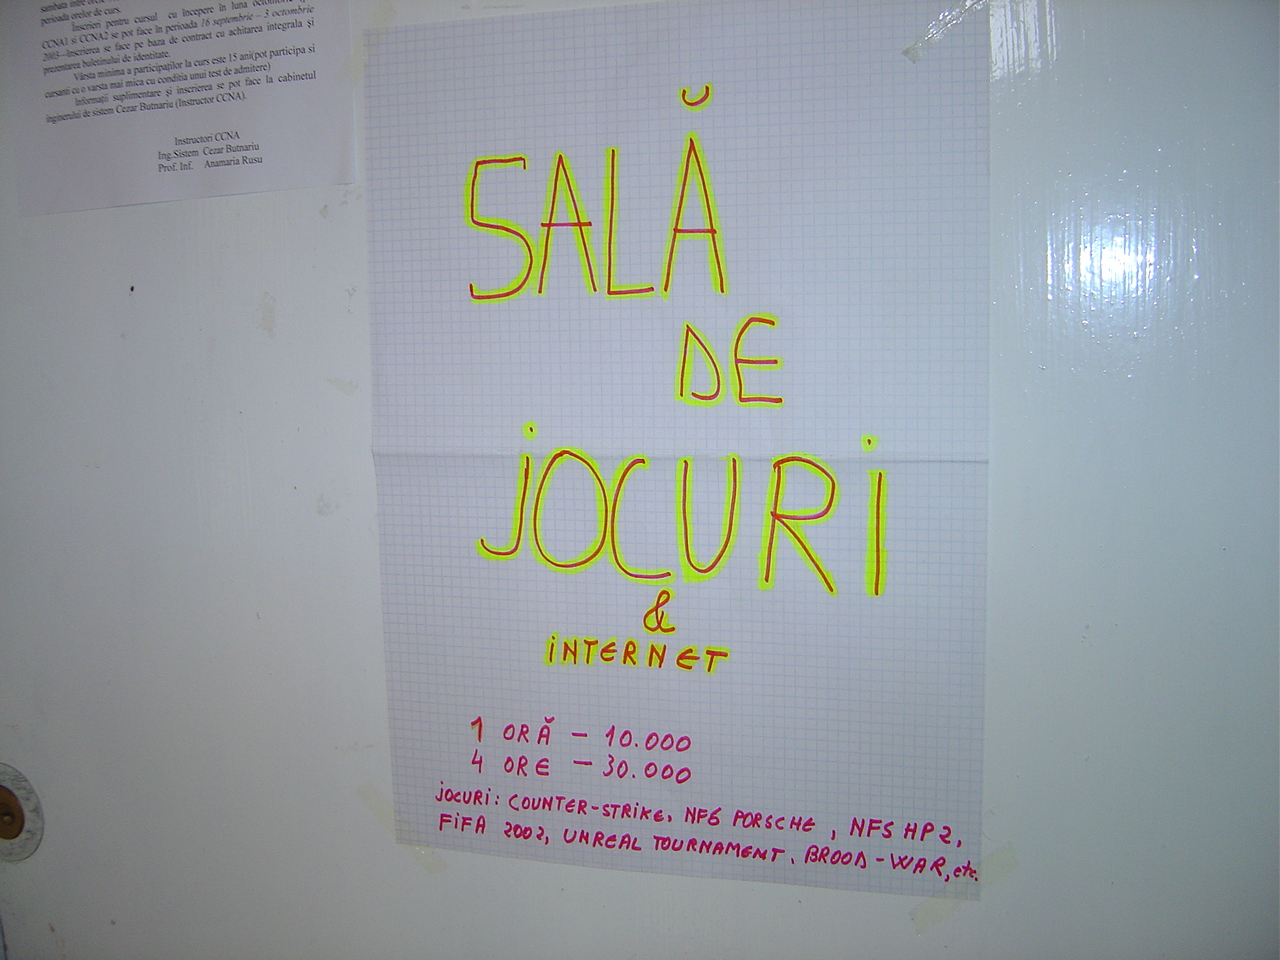 perioada orelor de curs.
Înscrieri pentru cursul cu începere în luna octombrie
CCNA1 si CCNA2 se pot face în perioada 16 septembrie – 3 octombrie
2003. Inscrierea se face pe baza de contract cu achitarea integrala și
prezentarea buletinului de identitate.
Vârsta minima a participaților la curs este 15 ani(pot participa si
cursanti cu o varsta mai mica cu conditia unui test de admitere)
Informații suplimentare și inscrierea se pot face la cabinetul
inginerului de sistem Cezar Butnariu (Instructor CCNA).
Instructori CCNA
Ing.Sistem Cezar Butnariu
Prof. Inf. Anamaria Rusu
SALĂ
DE
JOCURI
&
INTERNET
1 ORĂ – 10.000
4 ORE – 30.000
JOCURI: COUNTER-STRIKE, NFS PORSCHE, NFS HP2,
FIFA 2002, UNREAL TOURNAMENT, BROOD-WAR, etc.